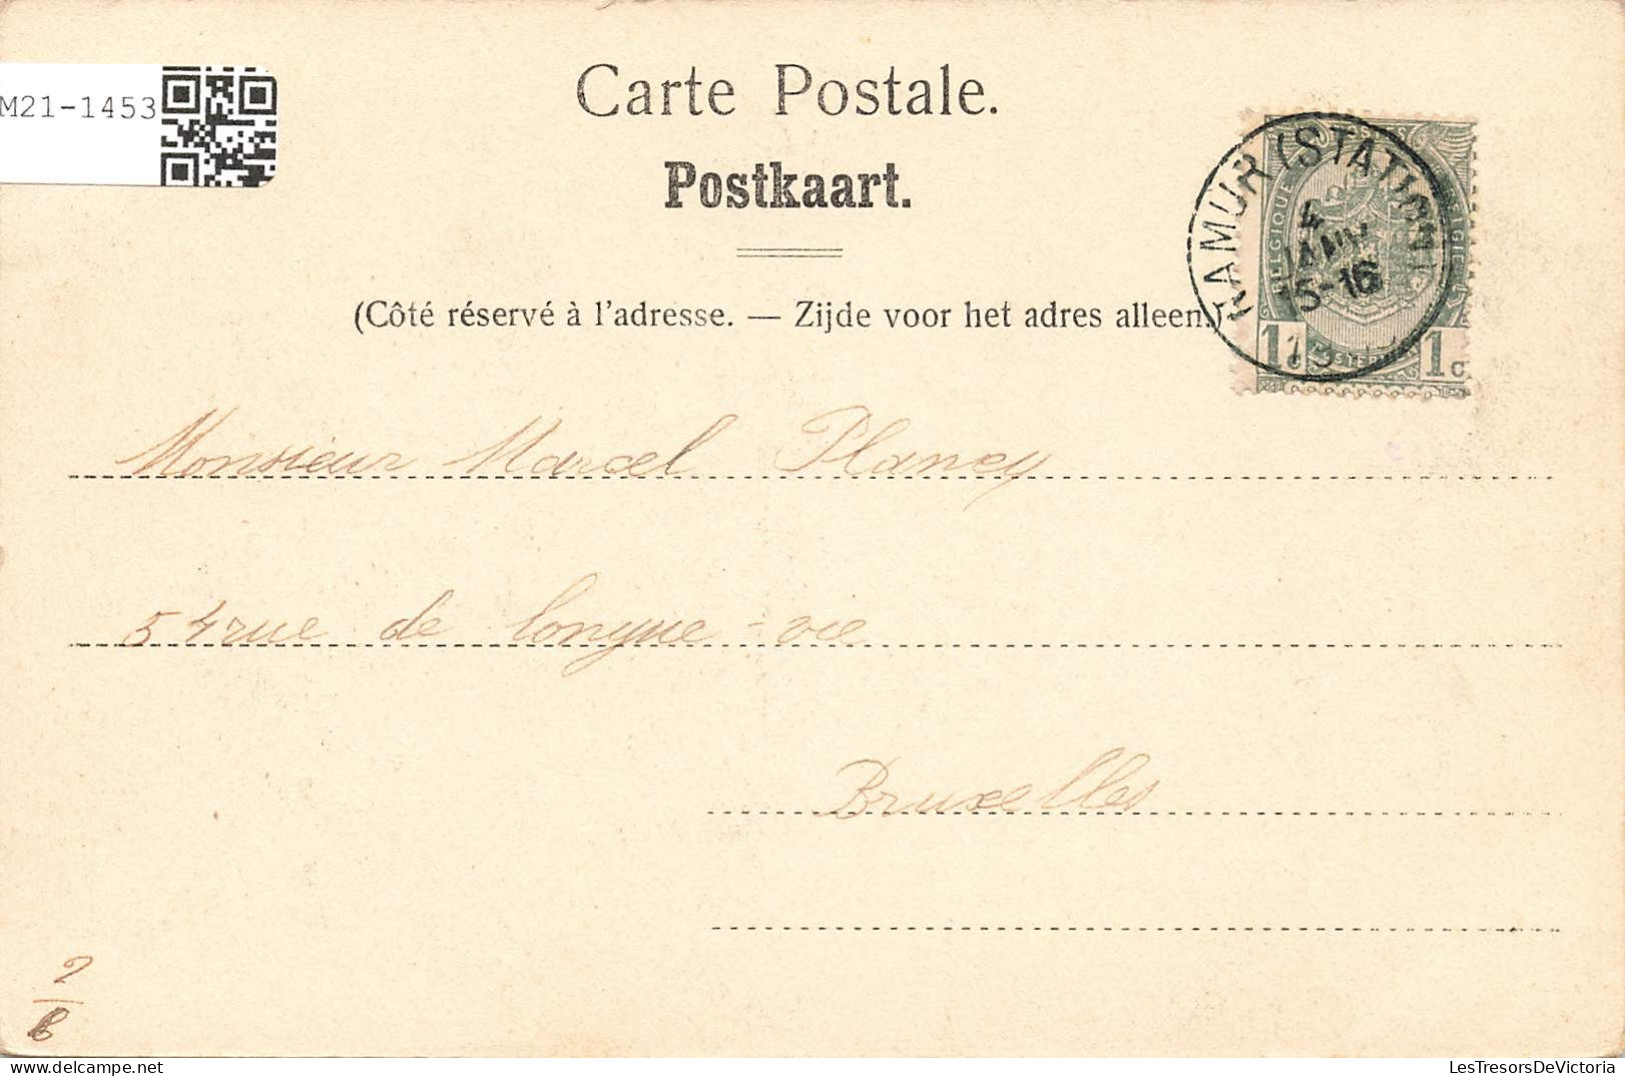 M21-1453
Carte Postale.
Postkaart.
(Côté réservé à l'adresse. — Zijde voor het adres alleen.)
NAMUR (STATION)
4
JANV
15-16
BELGIQUE
1 1c
Monsieur Marcel Planey
54 rue de longue-vie
Bruxelles
2
6
LesTresorsDeVictoria